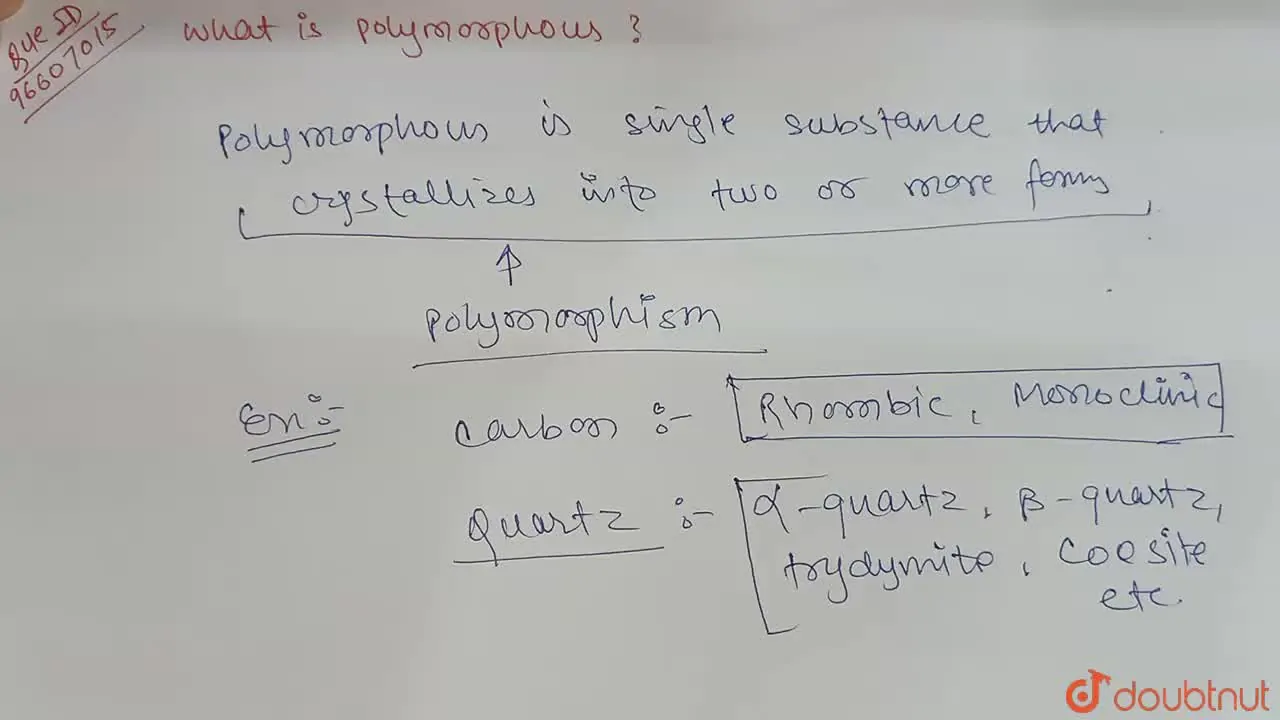 Que ID
96607015
What is polymorphous ?
Polymorphous is single substance that
crystallizes into two or more forms
↑
polymorphism
Ex:-
carbon :- Rhombic, Monoclinic
quartz :- α-quartz, β-quartz,
trydymite, coesite
etc.
doubtnut